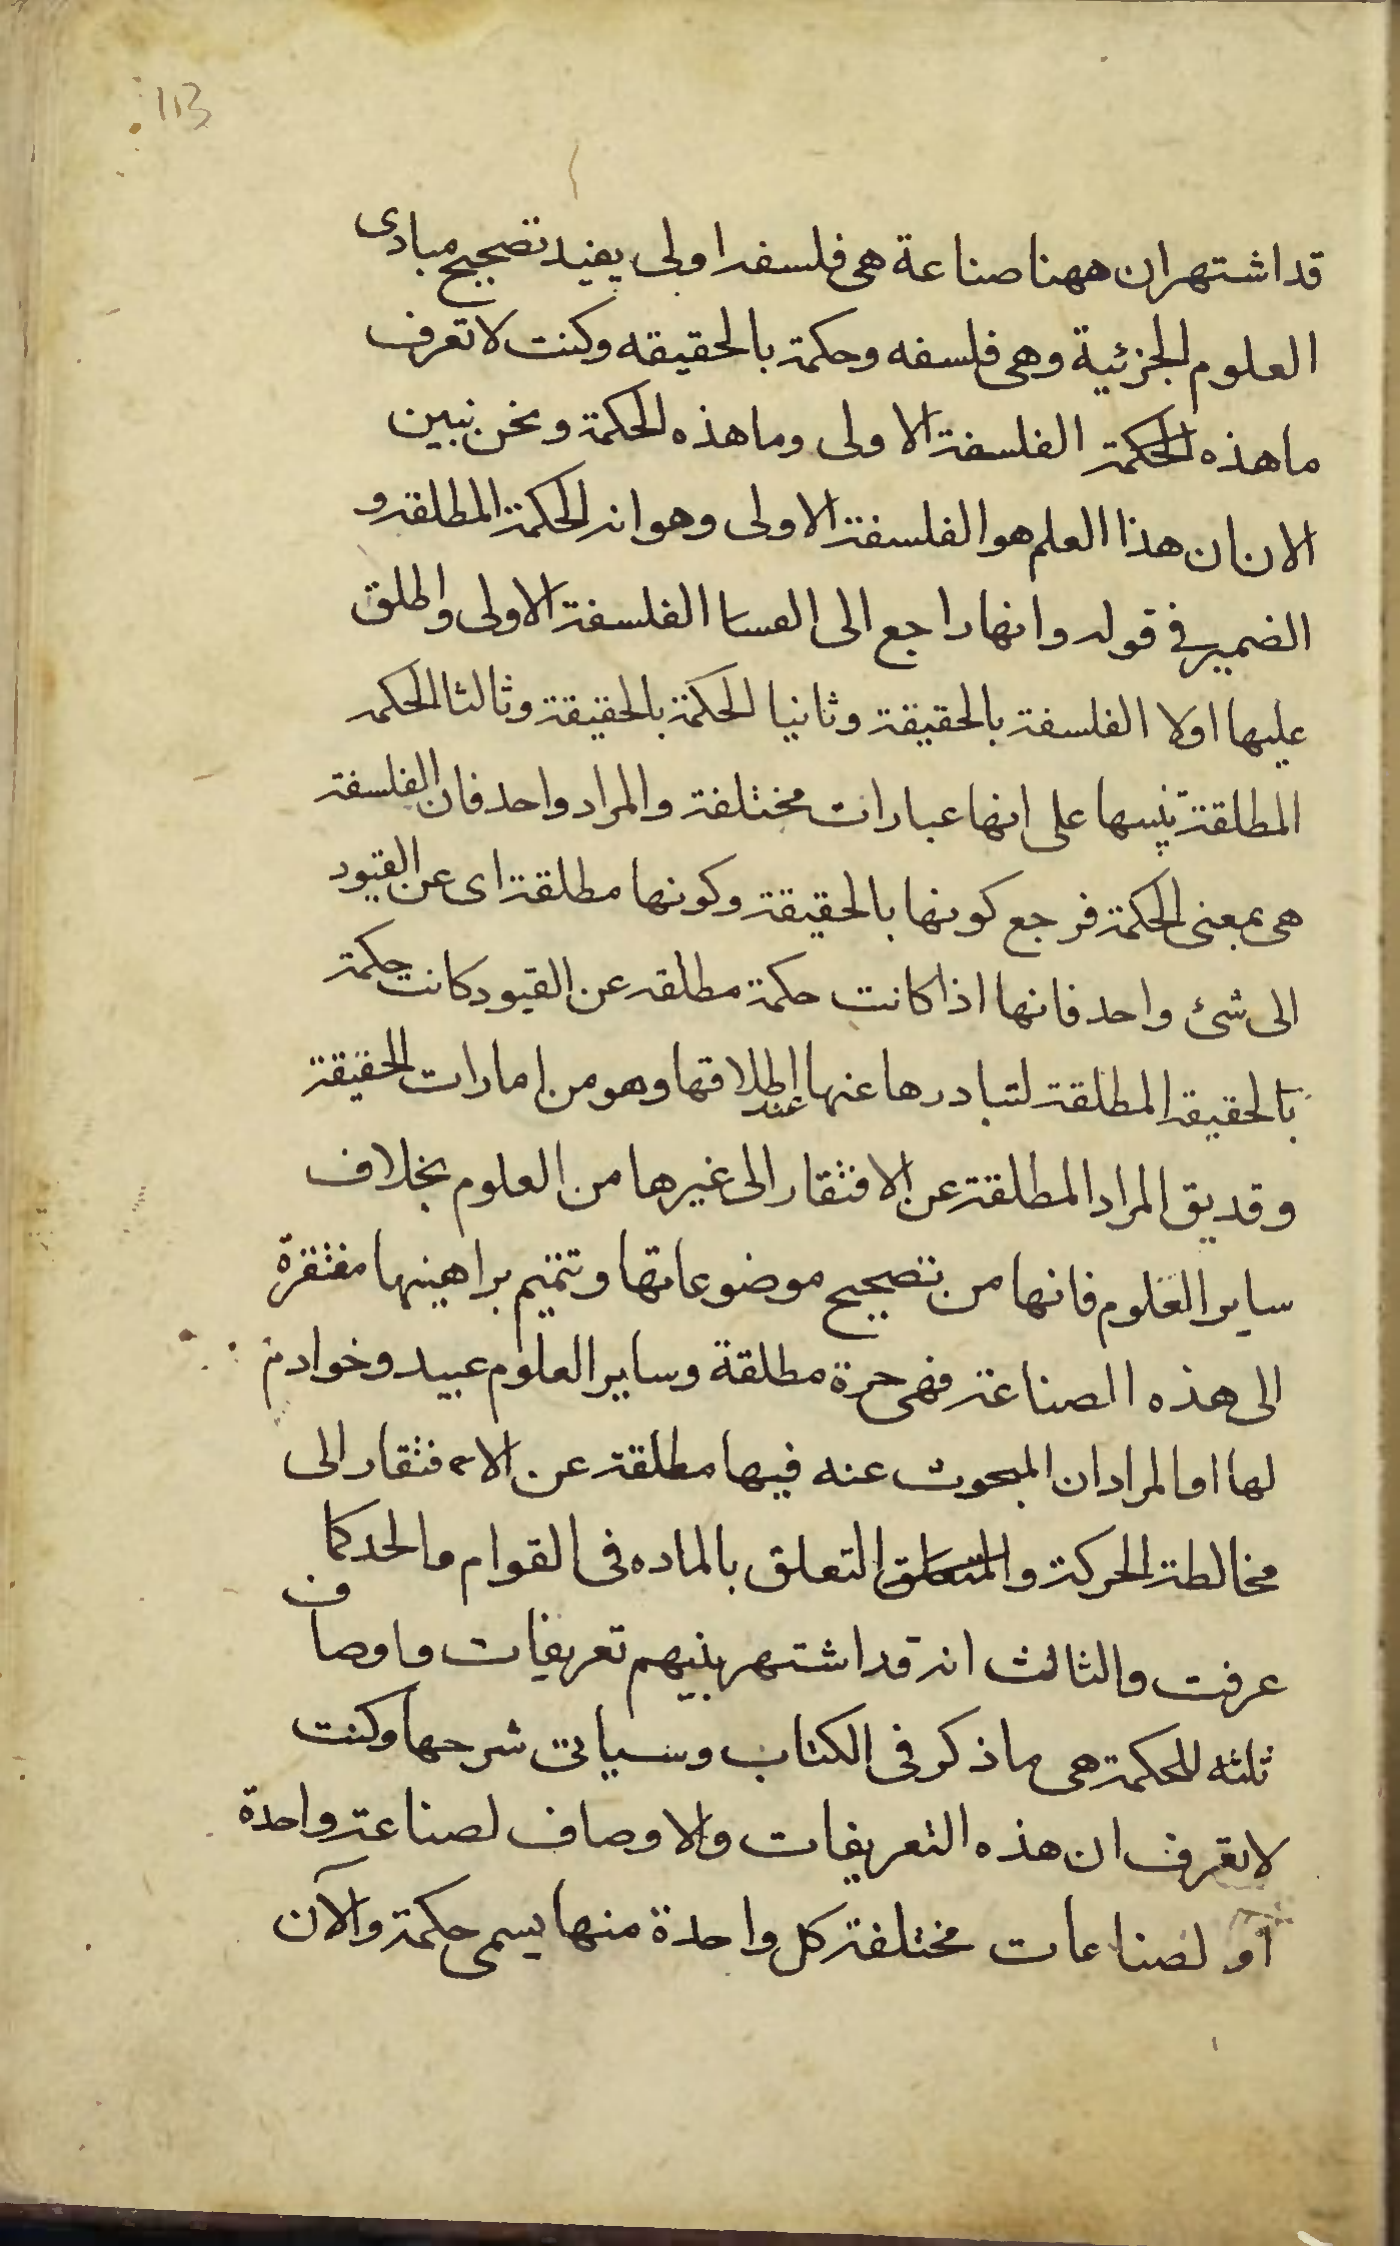 113
قد اشتهر ان ههنا صناعة هى فلسفه اولى يفيد تصحيح مبادى
العلوم الجزئية وهى فلسفه وحكمة بالحقيقه وكنت لا تعرف
ما هذه الحكمة الفلسفة الاولى وما هذه الحكمة ونحن نبين
الان ان هذا العلم هو الفلسفة الاولى وهو انه الحكمة المطلقة و
الضمير فى قوله وانها راجع الى الفلسفة الاولى واطلق
عليها اولا الفلسفة بالحقيقة وثانيا الحكمة بالحقيقة وثالثا الحكمه
المطلقة تنبيها على انها عبارات مختلفة والمراد واحد فان الفلسفة
هى بمعنى الحكمة فرجع كونها بالحقيقة وكونها مطلقة اى عن القيود
الى شئ واحد فانها اذا كانت حكمة مطلقه عن القيود كانت حكمة
بالحقيقه المطلقة لتبادرها عنها عند اطلاقها وهو من امارات الحقيقة
وقد يق المراد المطلقة عن الافتقار الى غيرها من العلوم بخلاف
ساير العلوم فانها من تصحيح موضوعاتها وتتميم براهينها مفتقرة
الى هذه الصناعة فهى حرة مطلقة وساير العلوم عبيد وخوادم
لها او المراد ان المبحوث عنه فيها مطلقة عن الافتقار الى
مخالطة الحركة والمتعلق التعلق بالماده فى القوام والحد كما
عرفت والثالث انه قد اشتهر بينهم تعريفات واوصاف
ثلثه للحكمة هى ما ذكر فى الكتاب وسياتى شرحها وكنت
لا تعرف ان هذه التعريفات والاوصاف لصناعة واحدة
او لصناعات مختلفة كل واحدة منها يسمى حكمة والآن